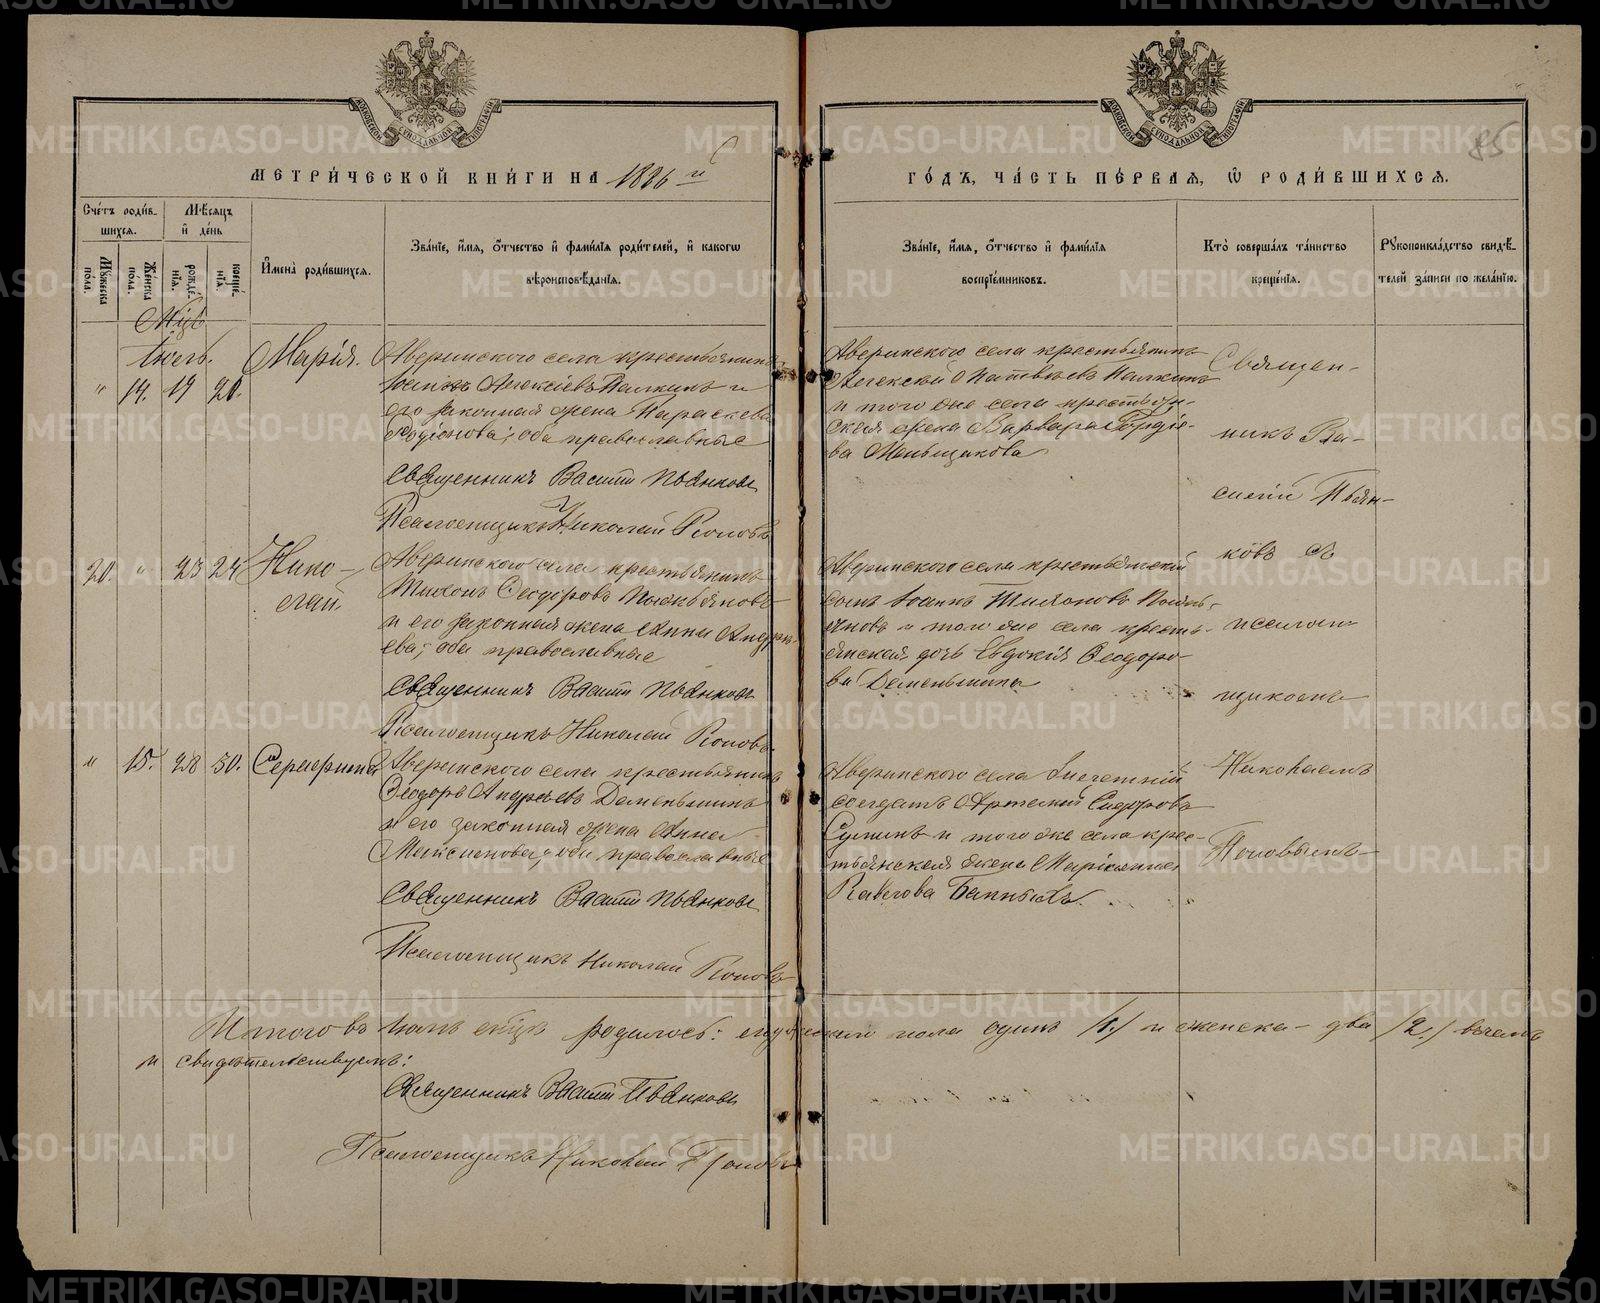 МЕТРИ́ЧЕСКОЙ КНИ́ГИ НА 1886 й
ГО́ДЪ, ЧА́СТЬ ПЕ́РВАЯ, Ѿ РОДИ́ВШИХСЯ.
85
Сче́тъ роди́в-
шихся.
Му́жеска по́ла.
Же́нска по́ла.
Мѣ́сяцъ
и҆ де́нь
рожде́нїѧ.
креще́нїѧ.
И҆мена̀ роди́вшихся.
Зва́нїе, и҆́мя, ѻ҆́тчество и҆ фами́лїя роди́телей, и҆ какогѡ
вѣроисповѣ́данїя.
Зва́нїе, и҆́мя, ѻ҆́тчество и҆ фами́лїя
воспрїе́мниковъ.
Кто̀ соверша́лъ та́инство
креще́нїя.
Рꙋкоприкла́дство свидѣ́-
телей за́писи по жела́нїю.
Мцъ
Іюль.
" 14. 19 20. Марія.
Аверинского села крестьянинъ
Іосифъ Алексіевъ Палкинъ и
его законная жена Параскева
Родіонова; оба православные
Священникъ Василій Пьянковъ
Псаломщикъ Николай Поповъ
Аверинского села крестьянинъ
Алексей Матвѣевъ Палкинъ
и того же села крестьян-
ская жена Варвара Гордіе-
ва Меньщикова
20. " 23 24 Нико-
лай.
Аверинского села крестьянинъ
Тихонъ Ѳеодоровъ
и его законная жена Анна Андре-
ева; оба православные
Священникъ Василій Пьянковъ
Псаломщикъ Николай Поповъ
Аверинского села крестьянскій
сынъ Іоаннъ Тихоновъ
и того же села кресть-
янская дочь Евдокія Ѳеодоро-
ва Деменьшина
" 15. 28 30. Серафима
Аверинского села крестьянинъ
Ѳеодоръ Андреевъ Деменьшинъ
и его законная жена Анна
оба православные
Священникъ Василій Пьянковъ
Псаломщикъ Николай Поповъ
Аверинского села
солдатъ Артемій Сидоровъ
и того же села крес-
тьянская жена
Павлова Банныхъ.
Священ-
никъ Ва-
силій Пьян-
ковъ съ
псалом-
щикомъ
Николаемъ
Поповымъ
Итого въ Іюлѣ мцѣ родилось: мужеского пола одинъ /1./ и женска – два /2./ въ чемъ
и свидѣтельствуемъ:
Священникъ Василій Пьянковъ
Псаломщикъ Николай Поповъ
METRIKI.GASO-URAL.RU